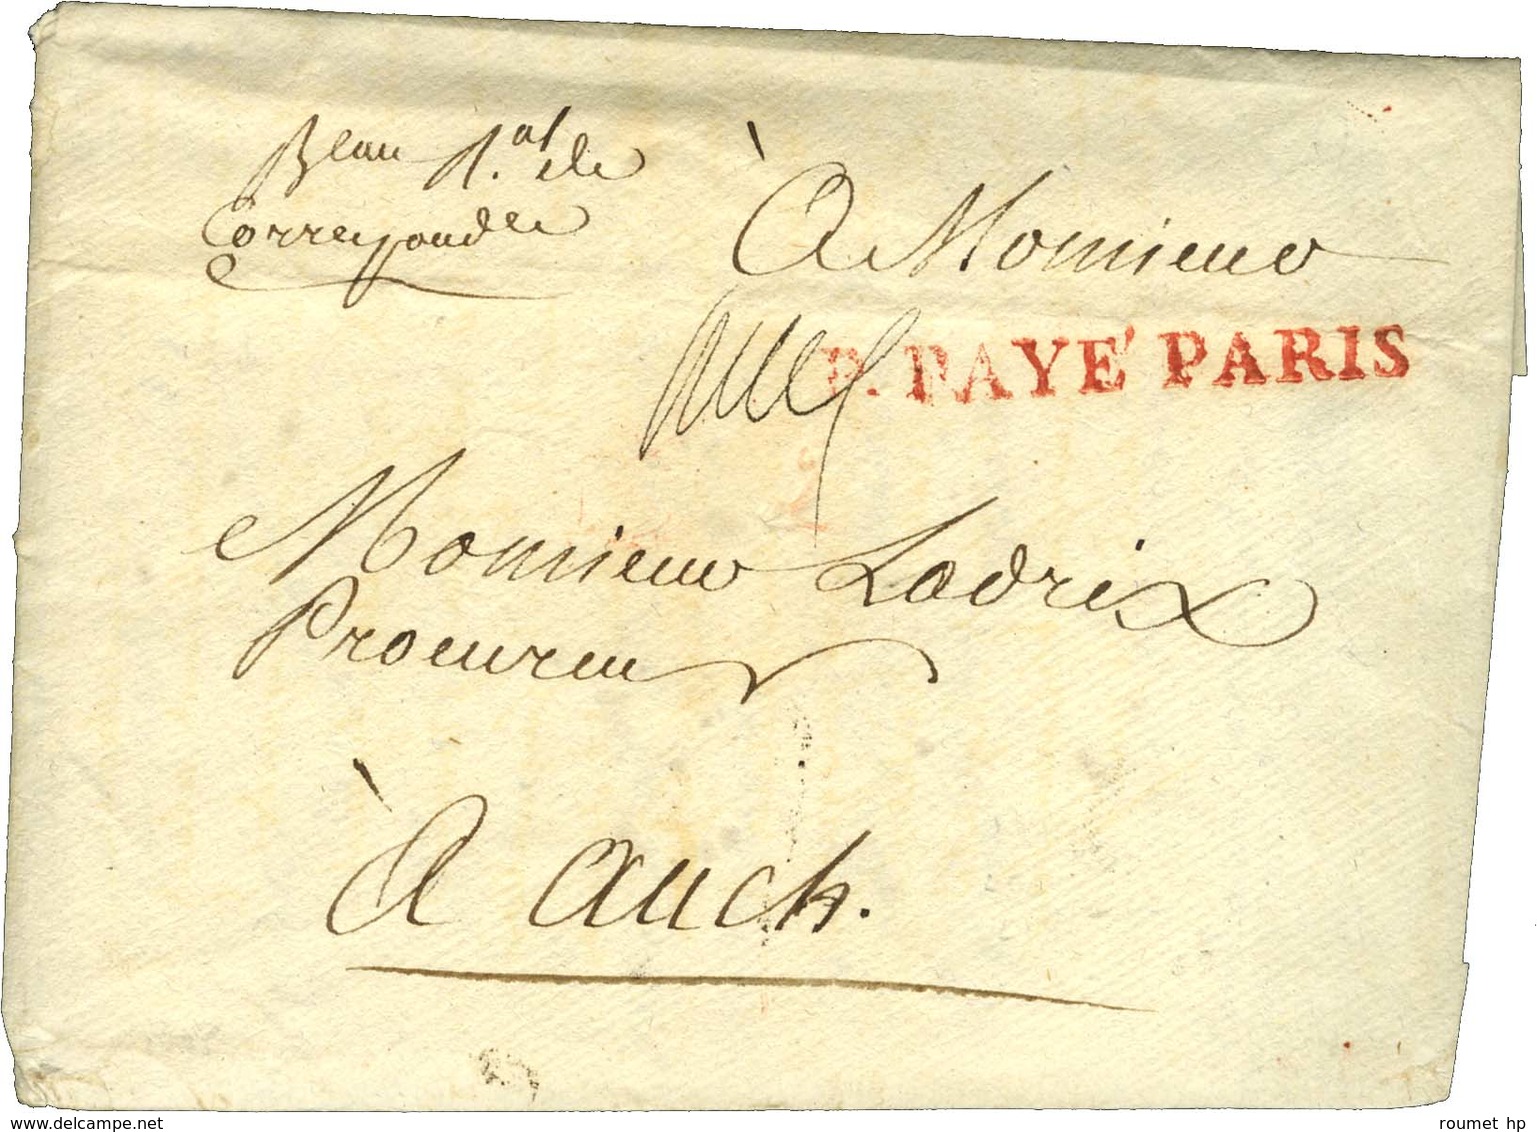 Beau G.al de
Correspondce
À Monsieur
P. PAYÉ PARIS
Monsieur Ladrix
Procureur
À Auch.
www.delcampe.net
roumet hp